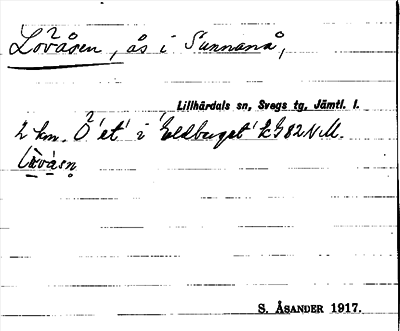 Lövåsen, ås i Sunnanå,
Lillhärdals sn, Svegs tg, Jämtl. l.
2 km. Ö 'et' i 'Eldbuget' k G82 N.M.
S. ÅSANDER 1917.